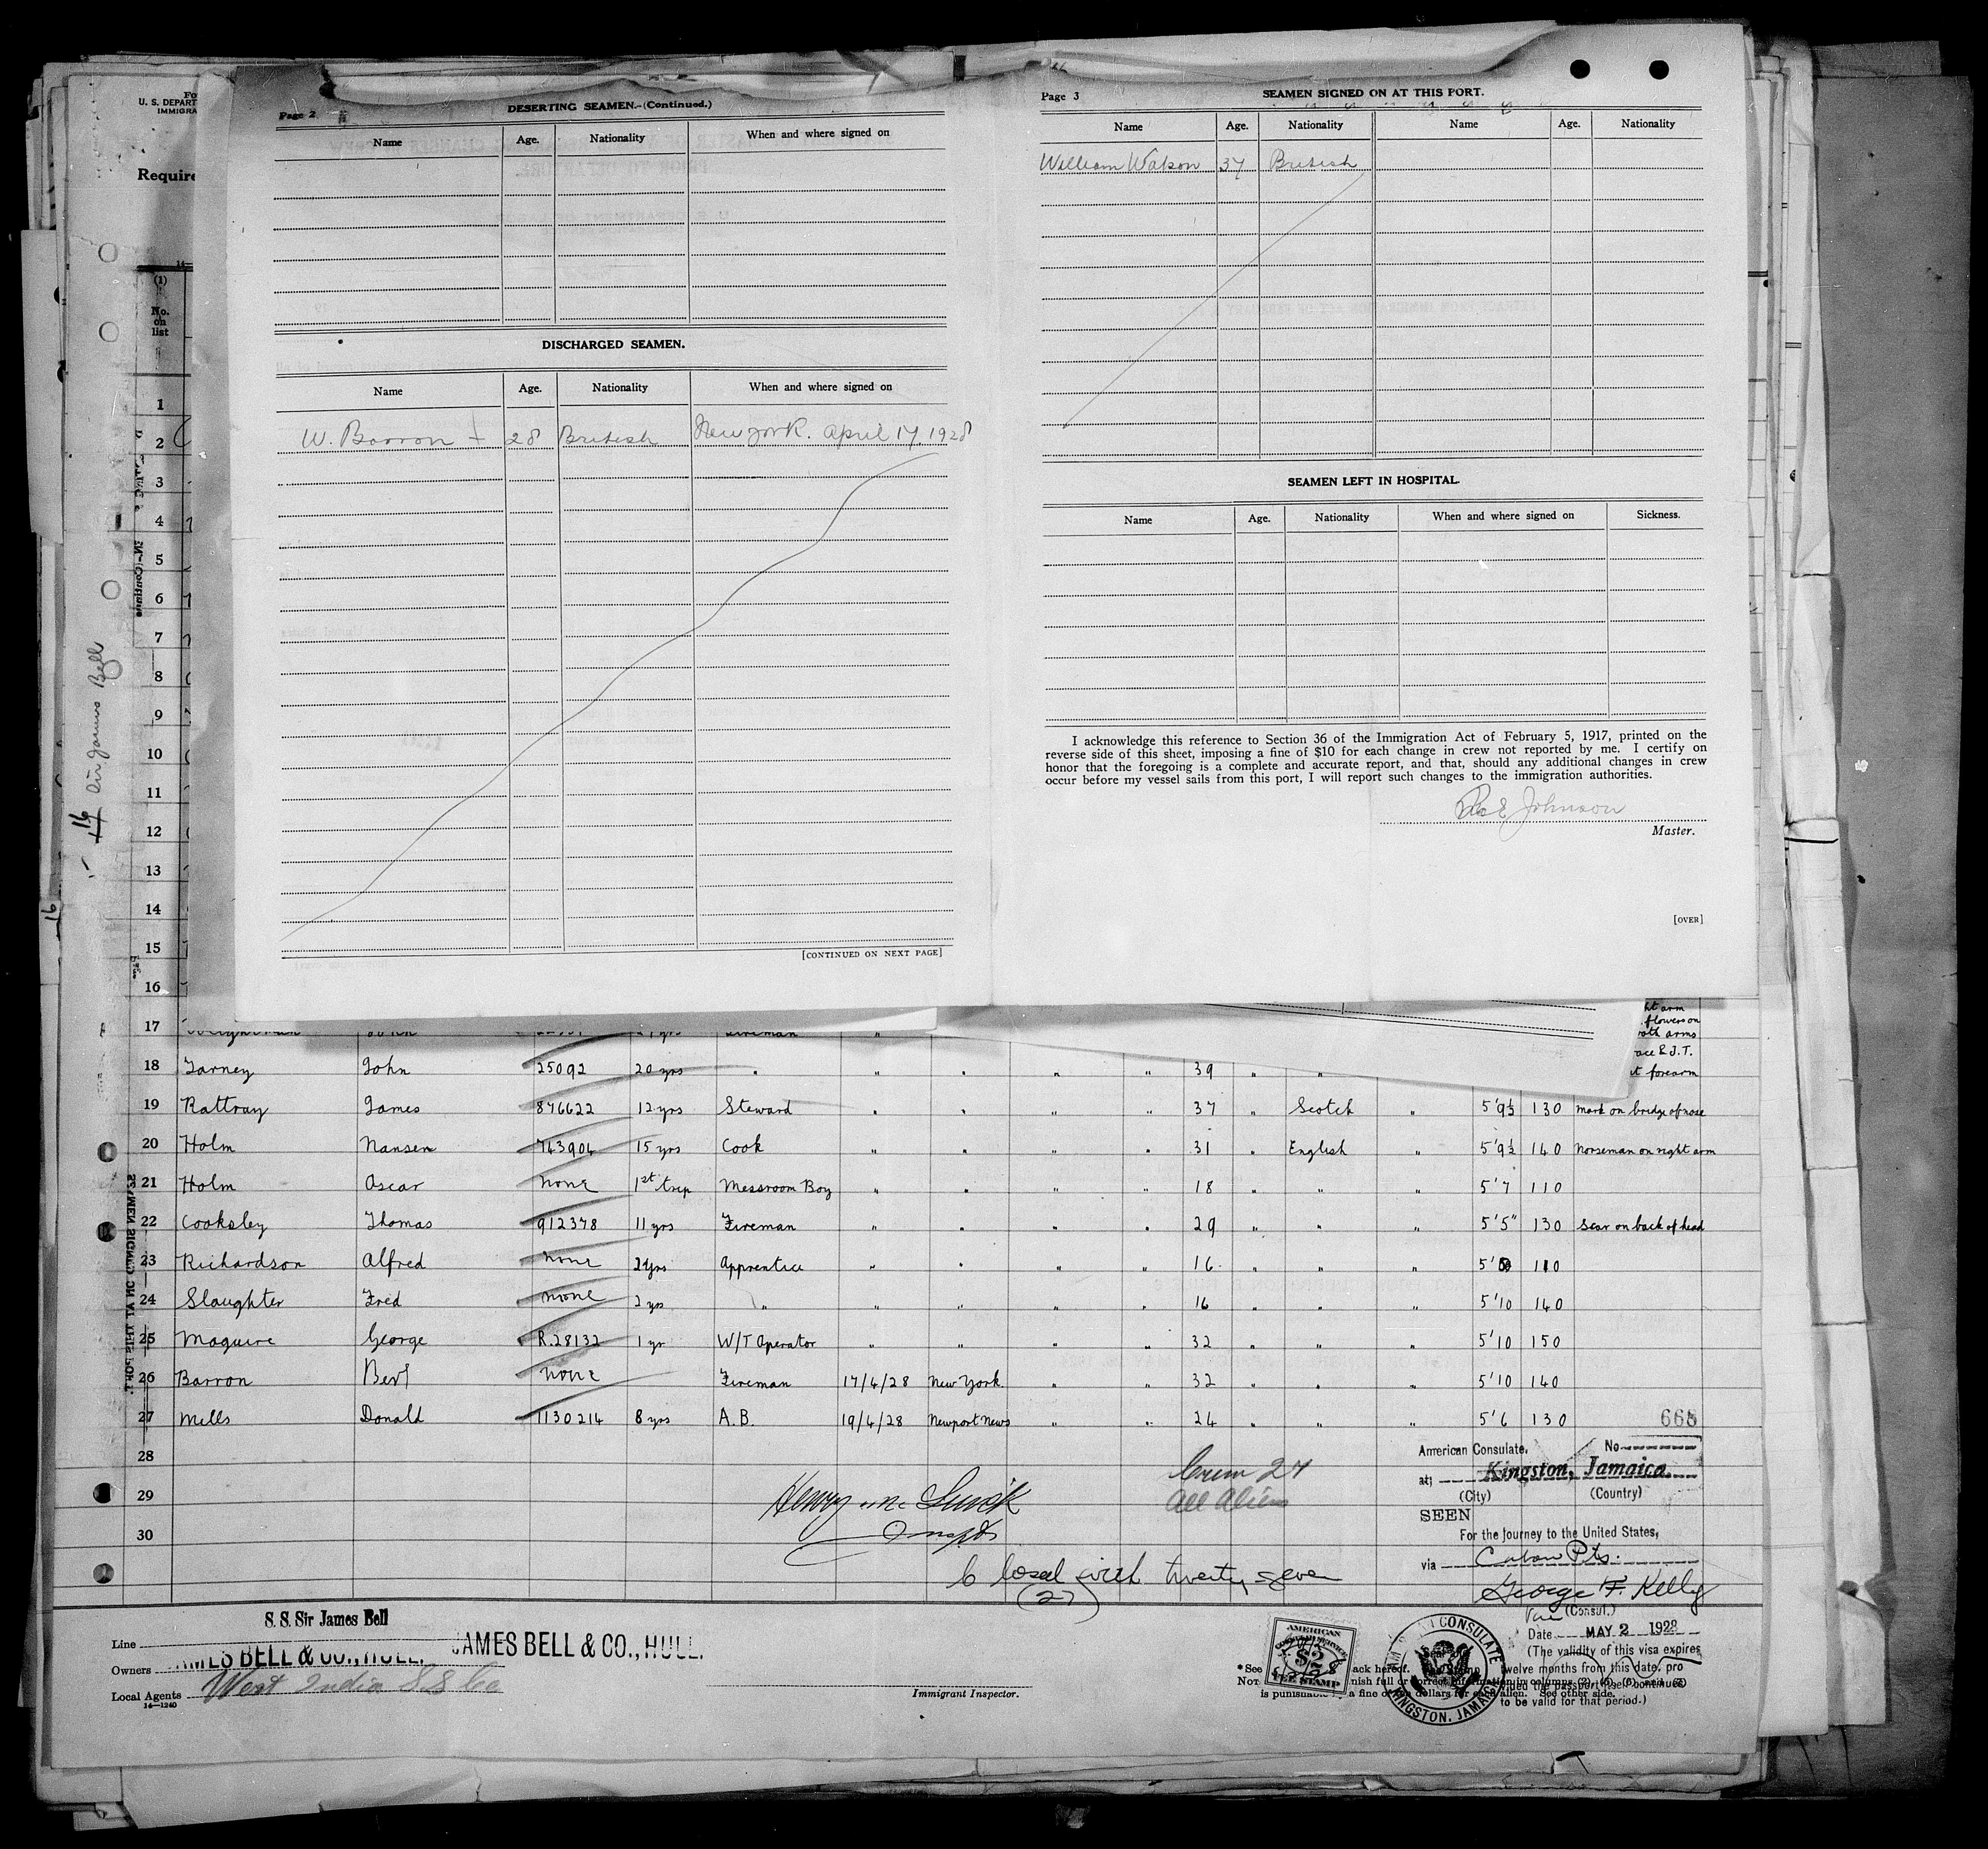 Page 2
DESERTING SEAMEN.-(Continued.)
Name Age. Nationality When and where signed on
DISCHARGED SEAMEN.
Name Age. Nationality When and where signed on
W. Barron 28 British New York. April 17 1928
[CONTINUED ON NEXT PAGE]
Page 3
SEAMEN SIGNED ON AT THIS PORT.
Name Age. Nationality Name Age. Nationality
William Watson 37 British
SEAMEN LEFT IN HOSPITAL.
Name Age. Nationality When and where signed on Sickness.
I acknowledge this reference to Section 36 of the Immigration Act of February 5, 1917, printed on the
reverse side of this sheet, imposing a fine of $10 for each change in crew not reported by me. I certify on
honor that the foregoing is a complete and accurate report, and that, should any additional changes in crew
occur before my vessel sails from this port, I will report such changes to the immigration authorities.
Johnson
Master.
[OVER]
U. S. DEPART
IMMIGRA
Require
(1)
No.
on
list
1
2
3
4
5
6
7
8
9
10
11
12
13
14
15
16
Sir James Bell
16
16
17 Fireman "
ht arm
flowers on
both arms
ace & J.T.
t forearm
18 Tarney John 25092 20 yrs " " " " " 39 " "
19 Rattray James 876622 12 yrs Steward " " " " 37 " Scotch " 5'9½ 130 mark on bridge of nose
20 Holm Nansen 743904 15 yrs Cook " " " " 31 " English " 5'9½ 140 Norseman on right arm
21 Holm Oscar none 1st trip Messroom Boy " " " " 18 " " " 5'7 110
22 Cooksley Thomas 912378 11 yrs Fireman " " " " 29 " " " 5'5" 130 Scar on back of head
23 Richardson Alfred none 2 yrs Apprentice " " " " 16 " " " 5' 110
24 Slaughter Fred none 2 yrs " " " " " 16 " " " 5'10 140
25 Maguire George R.28132 1 yr W/T Operator " " " " 32 " " " 5'10 150
26 Barron Bert none Fireman 17/4/28 New York " " 32 " " " 5'10 140
27 Mells Donald 1130214 8 yrs A.B. 19/4/28 Newport News " " 24 " " " 5'6 130
28
29
30
Crew 27
All Aliens
Closed with twenty seven
(27)
668
American Consulate, No
at; Kingston, Jamaica
(City) (Country)
SEEN
For the journey to the United States,
via Cuban Pts.
George F. Kelly
Vice (Consul.)
Date MAY 2 1928
(The validity of this visa expires
twelve months from this date, pro
vided the passport itself continues
to be valid for that period.)
S. S. Sir James Bell
Line
Owners JAMES BELL & CO., HULL. JAMES BELL & CO., HULL.
Local Agents West India SS Co
14-1240
Immigrant Inspector.
AMERICAN
$2
FEE STAMP
AMERICAN CONSULATE
KINGSTON, JAMAICA
*See back hereof.
is punishable a fine of dollars for each alien. See other side.